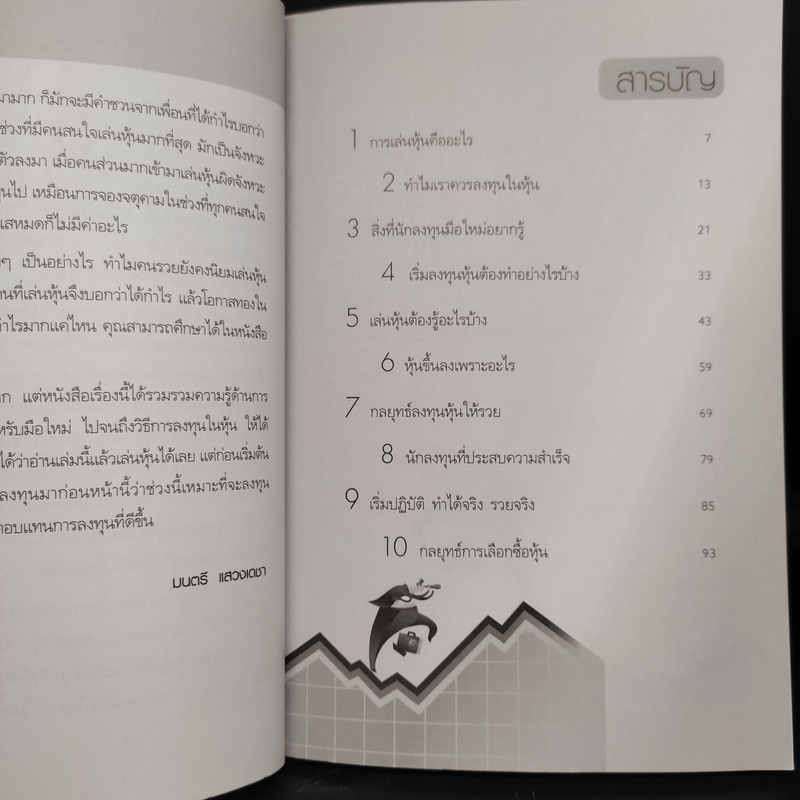 ก็มักจะมีคำชวนจากเพื่อนที่ได้กำไรบอกว่า
ช่วงที่มีคนสนใจเล่นหุ้นมากที่สุด มักเป็นจังหวะ
ตัวลงมา เมื่อคนส่วนมากเข้ามาเล่นหุ้นผิดจังหวะ
เหมือนการจองจตุคามในช่วงที่ทุกคนสนใจ
เสหมดก็ไม่มีค่าอะไร
เป็นอย่างไร ทำไมคนรวยยังคงนิยมเล่นหุ้น
ที่เล่นหุ้นจึงบอกว่าได้กำไร แล้วโอกาสทองใน
กำไรมากแค่ไหน คุณสามารถศึกษาได้ในหนังสือ
แต่หนังสือเรื่องนี้ได้รวมรวมความรู้ด้านการ
หรับมือใหม่ ไปจนถึงวิธีการลงทุนในหุ้น ให้ได้
ได้ว่าอ่านเล่มนี้แล้วเล่นหุ้นได้เลย แต่ก่อนเริ่มต้น
ลงทุนมาก่อนหน้านี้ว่าช่วงนี้เหมาะที่จะลงทุน
ตอบแทนการลงทุนที่ดีขึ้น
มนตรี แสวงเดชา
สารบัญ
1 การเล่นหุ้นคืออะไร 7
2 ทำไมเราควรลงทุนในหุ้น 13
3 สิ่งที่นักลงทุนมือใหม่อยากรู้ 21
4 เริ่มลงทุนหุ้นต้องทำอย่างไรบ้าง 33
5 เล่นหุ้นต้องรู้อะไรบ้าง 43
6 หุ้นขึ้นลงเพราะอะไร 59
7 กลยุทธ์ลงทุนหุ้นให้รวย 69
8 นักลงทุนที่ประสบความสำเร็จ 79
9 เริ่มปฏิบัติ ทำได้จริง รวยจริง 85
10 กลยุทธ์การเลือกซื้อหุ้น 93